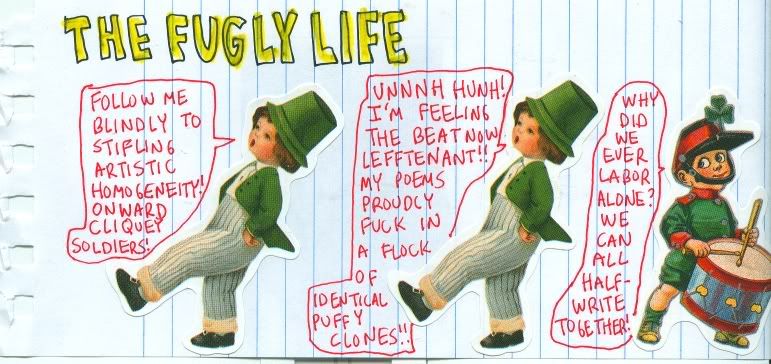 THE FUGLY LIFE
FOLLOW ME
BLINDLY TO
STIFLING
ARTISTIC
HOMOGENEITY!
ONWARD
CLIQUEY
SOLDIERS!
UNNNH HUNH!
I'M FEELING
THE BEAT NOW,
LEFFTENANT!!
MY POEMS
PROUDLY
FUCK IN
A FLOCK
OF
IDENTICAL
PUFFY
CLONES!!
WHY
DID
WE
EVER
LABOR
ALONE?
WE
CAN
ALL
HALF-
WRITE
TOGETHER!